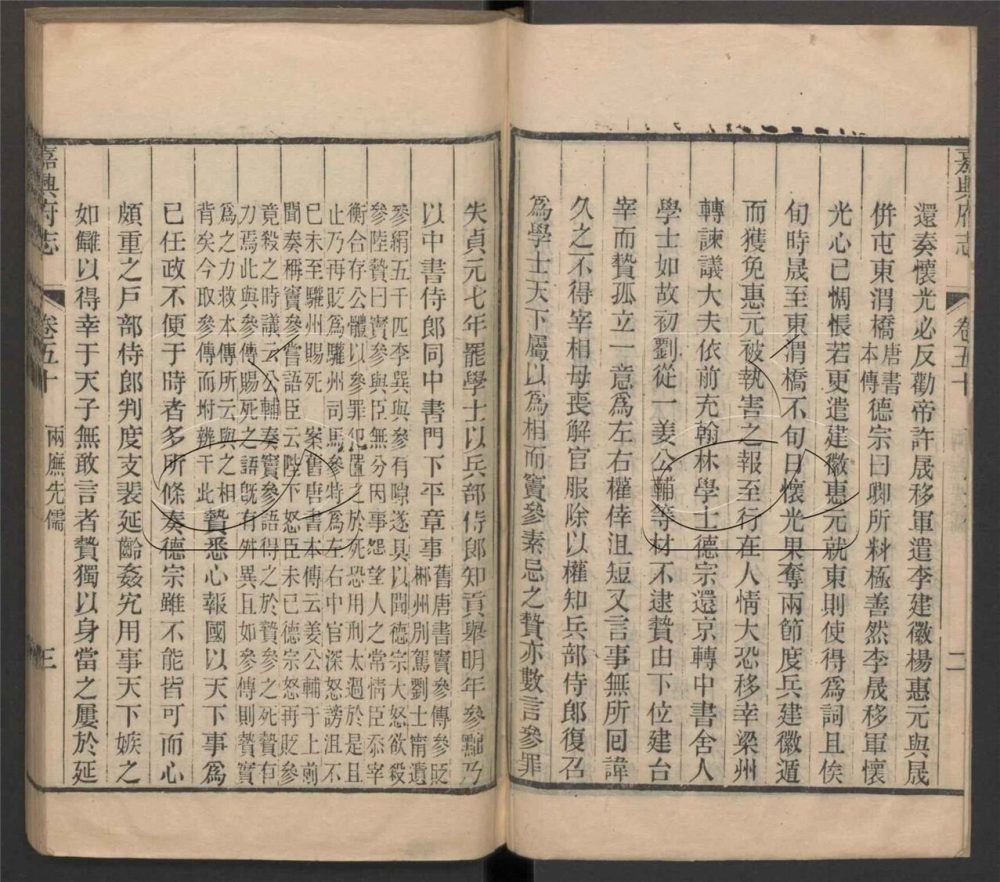 嘉興府志
卷五十
二
還奏懷光必反勸帝許晟移軍遣李建徽楊惠元與晟
併屯東渭橋唐書本傳德宗曰卿所料極善然李晟移軍懷
光心已惆悵若更遣建徽惠元就東則使得爲詞且俟
旬時晟至東渭橋不旬日懷光果奪兩節度兵建徽遁
而獲免惠元被執害之報至行在人情大恐移幸梁州
轉諫議大夫依前充翰林學士德宗還京轉中書舍人
學士如故初劉從一姜公輔等材不逮贄由下位建台
宰而贄孤立一意爲左右權倖沮短又言事無所回諱
久之不得宰相母喪解官服除以權知兵部侍郎復召
爲學士天下屬以爲相而竇參素忌之贄亦數言參罪
失貞元七年罷學士以兵部侍郎知貢舉明年參黜乃
以中書侍郎同中書門下平章事舊唐書竇參傳參貶
郴州別駕劉士甯遺
參絹五千匹李巽與參有隙遂具以聞德宗大怒欲殺
參陸贄曰竇參與臣無分因事怨望人之常情臣忝宰
衡合存公體以參罪犯置之於死恐用刑太過於是且
止乃再貶爲驩州司馬參特爲左右中官深怒謗沮不
已未至驩州賜死 案舊唐書本傳云姜公輔于上前
聞奏稱竇參嘗語臣云陛下怒臣未已德宗怒再貶參
竟殺之時議云公輔奏竇參語得之於贄參之死贄有
力焉此與參傳賜死之語旣有舛異且如參傳則贄實
爲之力救本傳所云與之相
背矣今取參傳而坿辨于此贄悉心報國以天下事爲
已任政不便于時者多所條奏德宗雖不能皆可而心
頗重之戸部侍郎判度支裴延齡姦宄用事天下嫉之
如讎以得幸于天子無敢言者贄獨以身當之屢於延
嘉興府志
卷五十
兩廡先儒
三